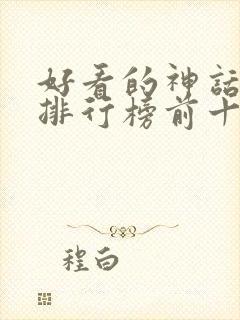 好看的神话
排行榜前十
程白